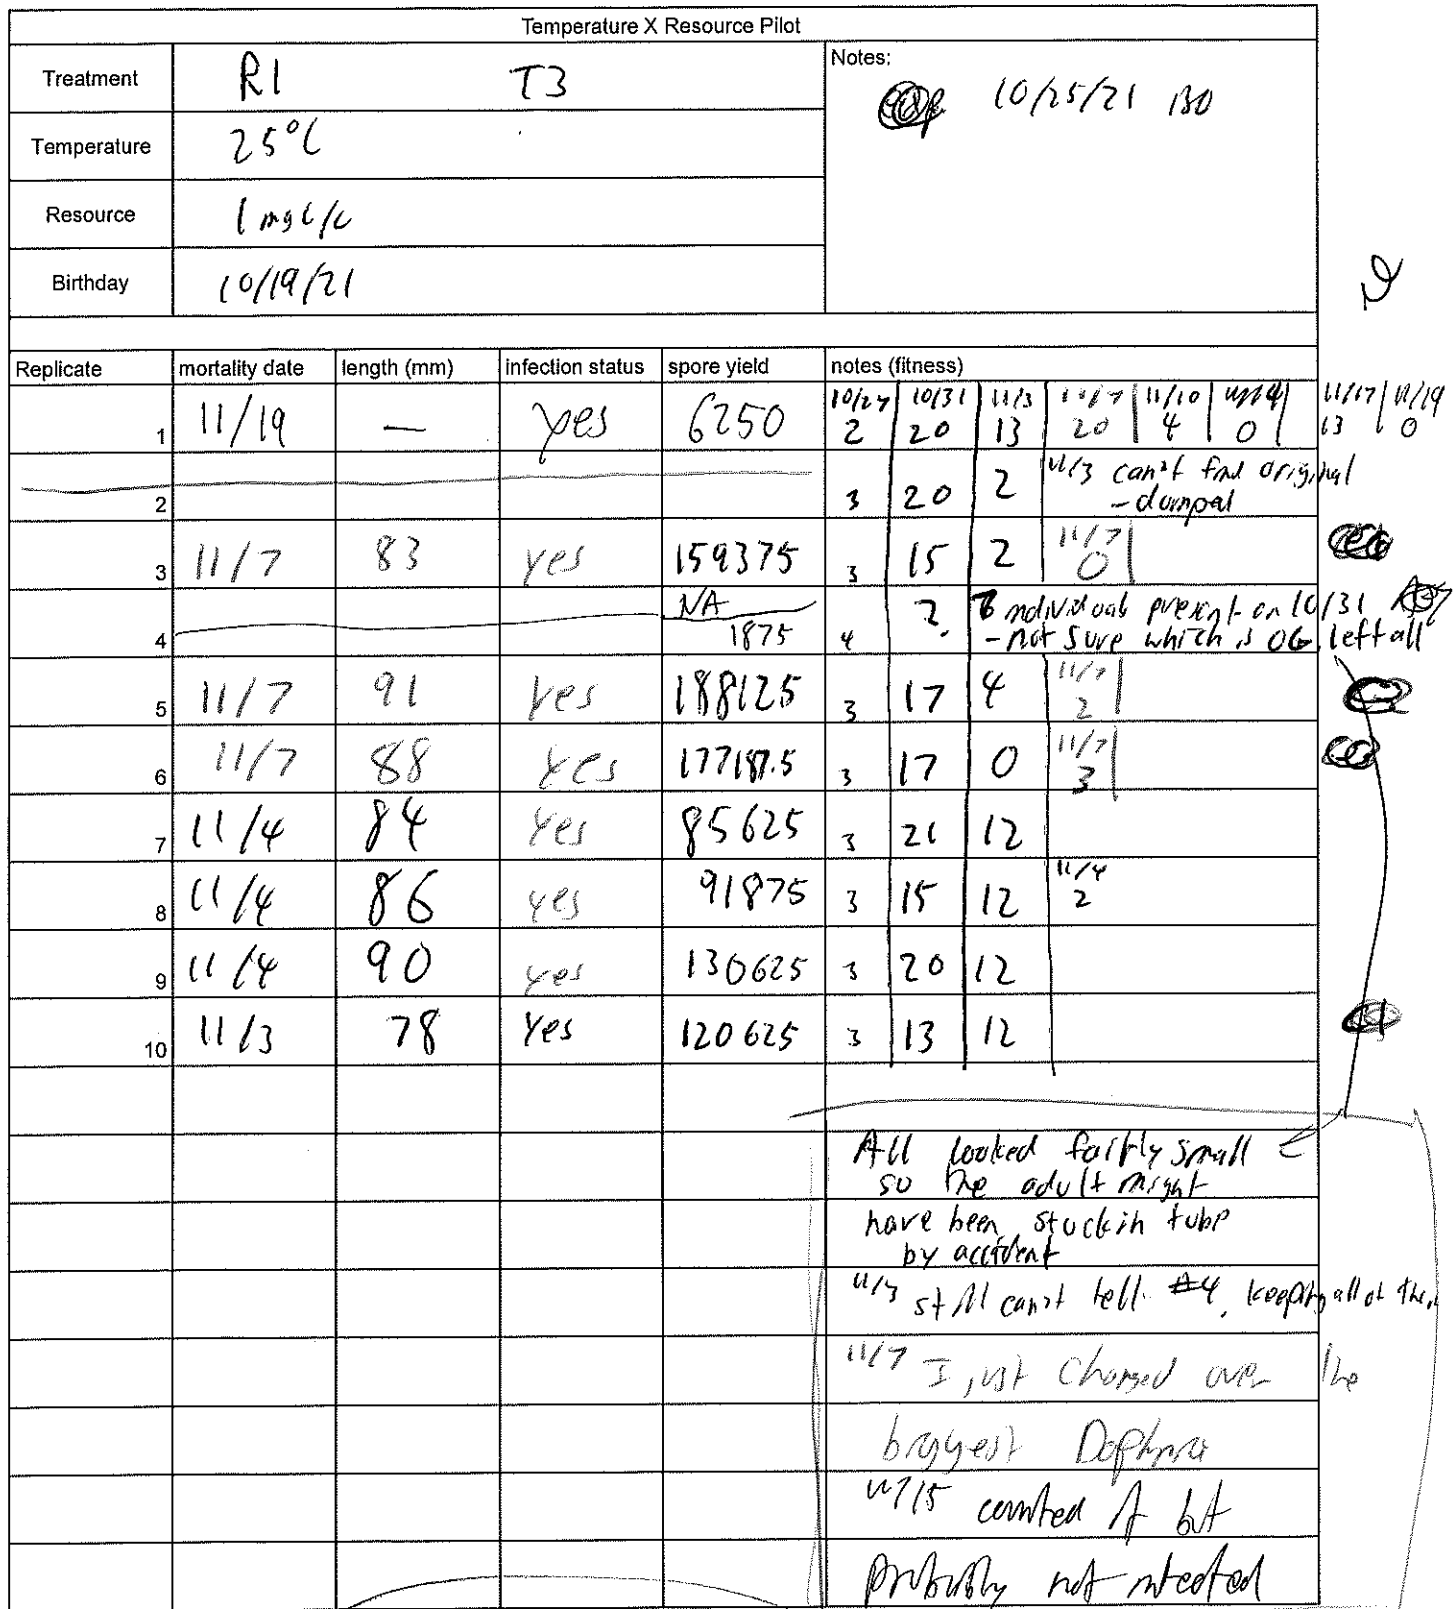 Temperature X Resource Pilot
Treatment R1 T3 Notes:
10/25/21 BO
Temperature 25°C
Resource 1 mgC/L
Birthday 10/19/21
Replicate mortality date length (mm) infection status spore yield notes (fitness)
10/27 10/31 11/3 11/7 11/10 11/14 11/17 11/19
1 11/19 — yes 6250 2 20 13 20 4 0 13 0
2 3 20 2 11/3 can't find original
- dumped
11/7
3 11/7 83 yes 159375 3 15 2 0
NA 6 individuals present on 10/31
4 1875 4 ? - not sure which is OG, left all
11/7
5 11/7 91 yes 188125 3 17 4 2
11/7
6 11/7 88 yes 177187.5 3 17 0 3
7 11/4 84 yes 85625 3 21 12
11/4
8 11/4 86 yes 91875 3 15 12 2
9 11/4 90 yes 130625 3 20 12
10 11/3 78 yes 120625 3 13 12
All looked fairly small
so the adult might
have been stuck in tube
by accident
11/3 still can't tell #4, keeping all of them
11/7 I just changed over the
biggest Daphnia
counted it but
probably not infected